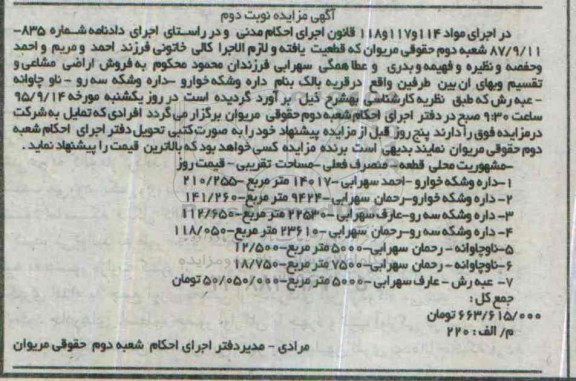 آگهی مزایده نوبت دوم
در اجرای مواد ۱۱۴و۱۱۷و۱۱۸ قانون اجرای احکام مدنی و در راستای اجرای دادنامه شماره ۸۳۵-
۸۷/۹/۱۱ شعبه دوم حقوقی مریوان که قطعیت یافته و لازم الاجرا کالی خاتونی فرزند احمد و مریم و احمد
وحفصه و نظیره و فهیمه و بدری و عطا همگی سهرابی فرزندان محمود محکوم به فروش اراضی مشاعی و
تقسیم وبهای ان بین طرفین واقع درقریه بالک بنام داره وشکه خوارو -داره وشکه سه رو - ناو چاوانه
- عبه رش که طبق نظریه کارشناسی بهشرح ذیل بر آورد گردیده است در روز یکشنبه مورخه ۹۵/۹/۱۴
ساعت ۹:۳۰ صبح در دفتر اجرای احکام شعبه دوم حقوقی مریوان برگزار می گردد افرادی که تمایل به شرکت
درمزایده فوق را دارند پنج روز قبل از مزایده پیشنهاد خود را به صورت کتبی تحویل دفتر اجرای احکام شعبه
دوم حقوقی مریوان نمایند بدیهی است برنده مزایده کسی خواهد بود که بالاترین قیمت را پیشنهاد نماید.
-مشهوریت محلی قطعه - متصرف فعلی -مساحت تقریبی - قیمت روز
۱-داره وشکه خوارو -احمد سهرابی -۱۴۰۱۷ متر مربع -۲۱۰/۲۵۵
۲- داره وشکه خوارو-رحمان سهرابی -۹۴۲۴ متر مربع -۱۴۱/۳۶۰
۳- داره وشکه سه رو-عارف سهرابی -۲۲۵۳۰ متر مربع -۱۱۲/۶۵۰
۴- داره وشکه سه رو-رحمان سهرابی -۲۳۶۱۰ متر مربع -۱۱۸/۰۵۰
۵-ناوچاوانه - رحمان سهرابی -۵۰۰۰ متر مربع-۱۲/۵۰۰
۶-ناوچاوانه - رحمان سهرابی -۷۵۰۰ متر مربع -۱۸/۷۵۰
۷- عبه رش - عارف سهرابی -۵۰۰۰ متر مربع -۵۰/۰۵۰/۰۰۰ تومان
جمع کل:
۶۶۳/۶۱۵/۰۰۰ تومان
م/ الف: ۲۲۰
مرادی - مدیر دفتر اجرای احکام شعبه دوم حقوقی مریوان